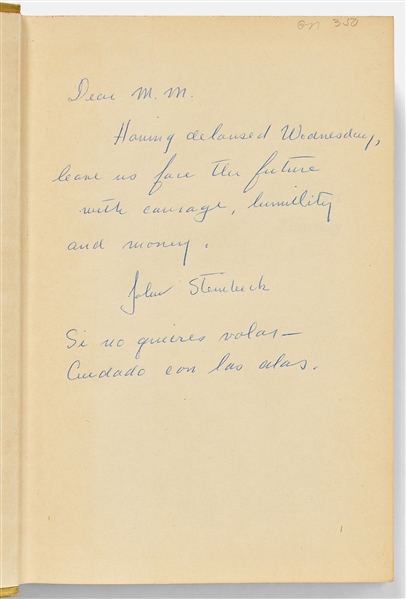 on 350
Dear M. M.
Having deloused Wednesday,
leave us face the future
with courage, humility
and money.
John Steinbeck
Si no quieres volar—
Cuidado con las alas.